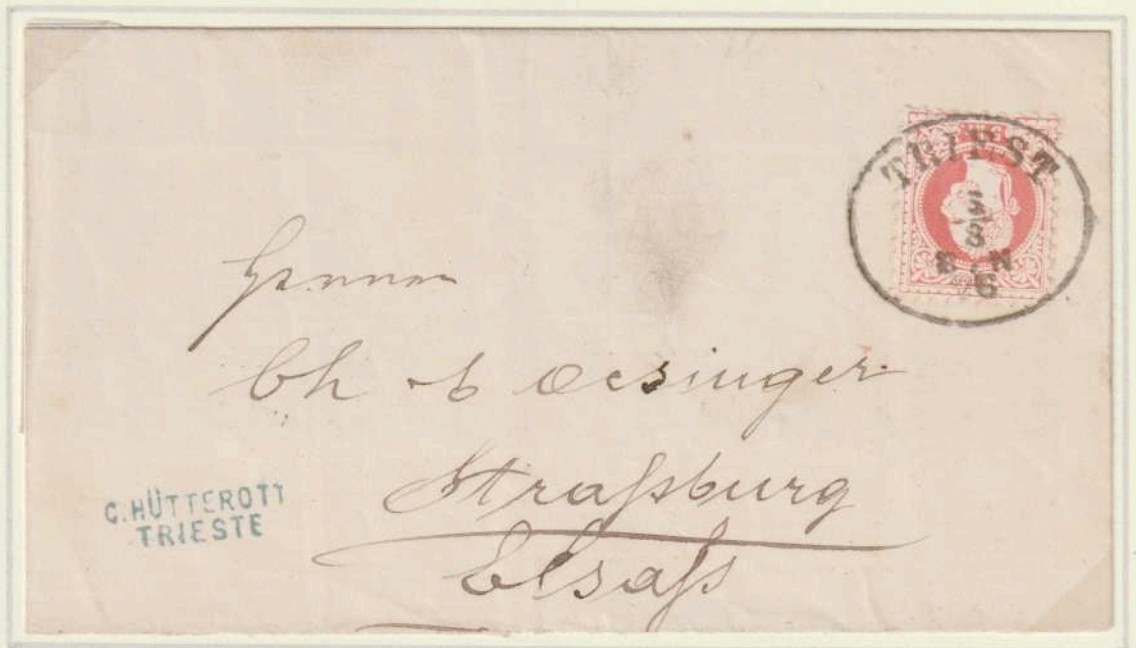 TRIEST
9/8
E.N
6
Herrn
Ch Oesinger
Straßburg
Elsaß
C. HÜTTEROTT
TRIESTE